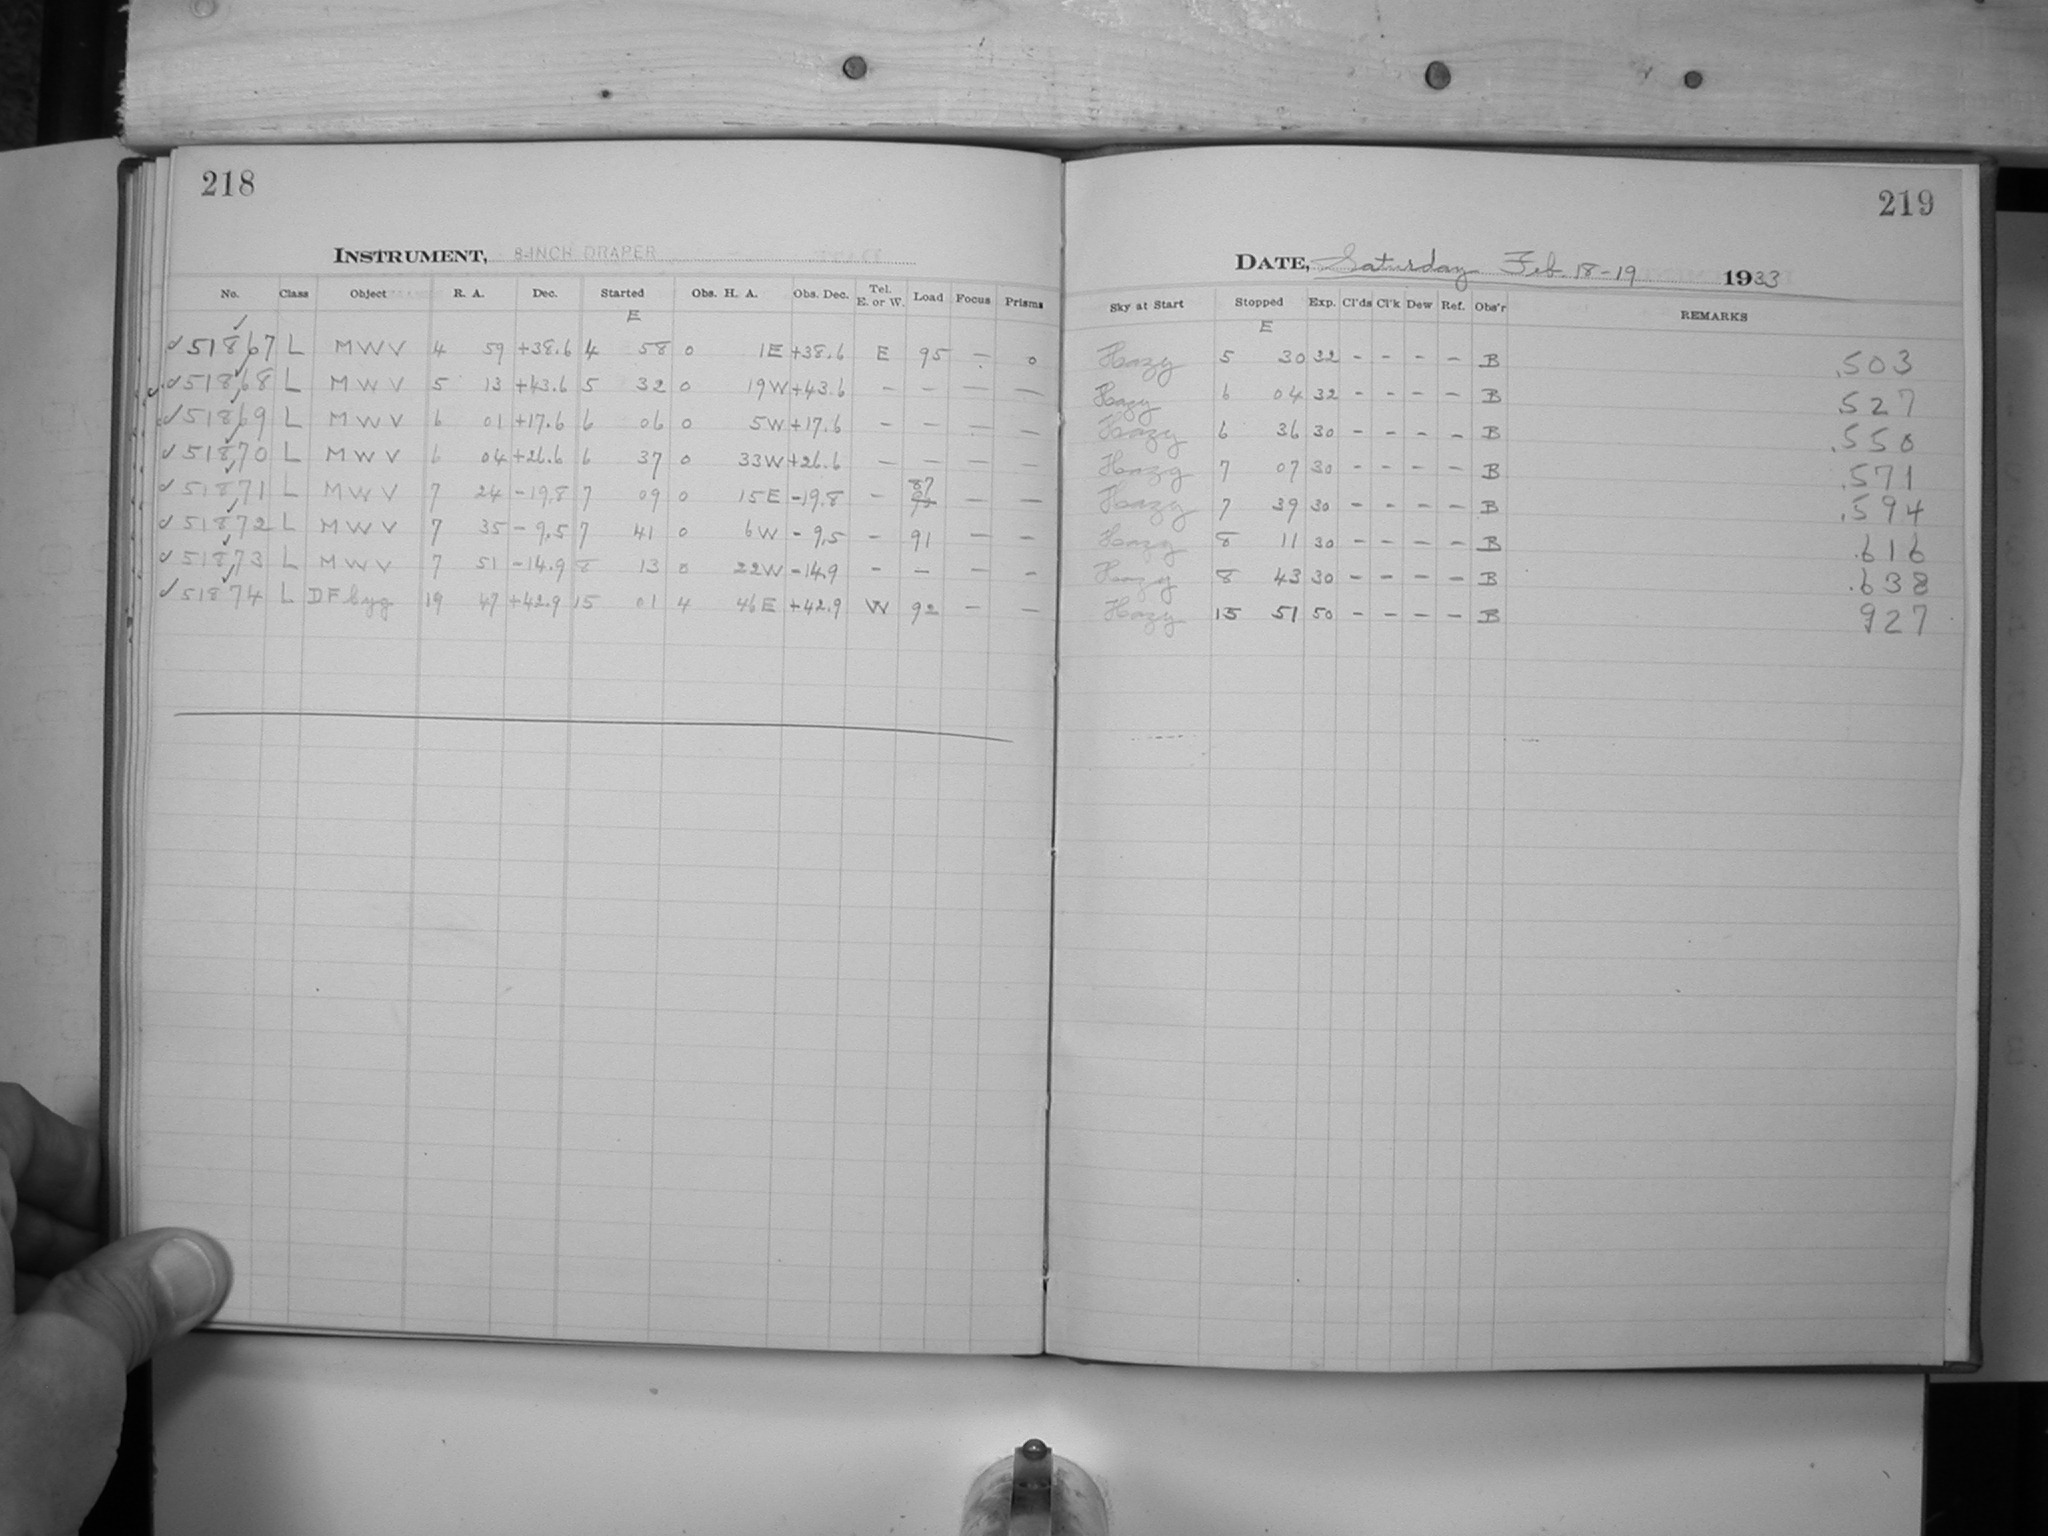 218
INSTRUMENT, 8-INCH DRAPER
No. Class Object R. A. Dec. Started Obs. H. A. Obs. Dec. Tel. E. or W. Load Focus Prisms
E
51867 L MWV 4 59 +38.6 4 58 0 1E +38.6 E 95 – 0
51868 L MWV 5 13 +43.6 5 32 0 19W +43.6 – – – –
51869 L MWV 6 01 +17.6 6 06 0 5W +17.6 – – – –
51870 L MWV 6 04 +26.6 6 37 0 33W +26.6 – – – –
51871 L MWV 7 24 -19.8 7 09 0 15E -19.8 – 87 – –
51872 L MWV 7 35 -9.5 7 41 0 6W -9.5 – 91 – –
51873 L MWV 7 51 -14.9 8 13 0 22W -14.9 – – – –
51874 L DF Cyg 19 47 +42.9 15 01 4 46E +42.9 W 92 – –
219
DATE, Saturday Feb. 18-19 1933
Sky at Start Stopped Exp. Cl'ds Cl'k Dew Ref. Obs'r REMARKS
E
Hazy 5 30 32 – – – – B .503
Hazy 6 04 32 – – – – B .527
Hazy 6 36 30 – – – – B .550
Hazy 7 07 30 – – – – B .571
Hazy 7 39 30 – – – – B .594
Hazy 8 11 30 – – – – B .616
Hazy 8 43 30 – – – – B .638
Hazy 15 51 50 – – – – B 927